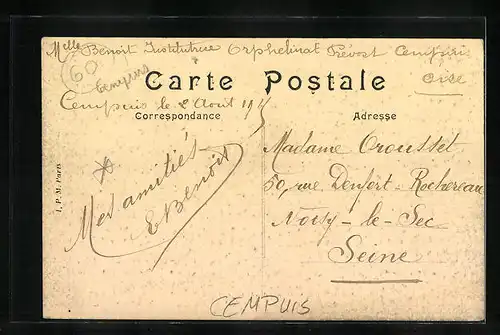 Melle Benoit Institutrice Orphelinat Prévost Cempuis
Oise
60
Cempuis
Carte Postale
Cempuis le 2 Août 1915
Correspondance
Adresse
Mes amitiés
E Benoit
Madame Croussel
50, rue Denfert-Rochereau
Noisy-le-Sec
Seine
I. P. M. Paris
CEMPUIS